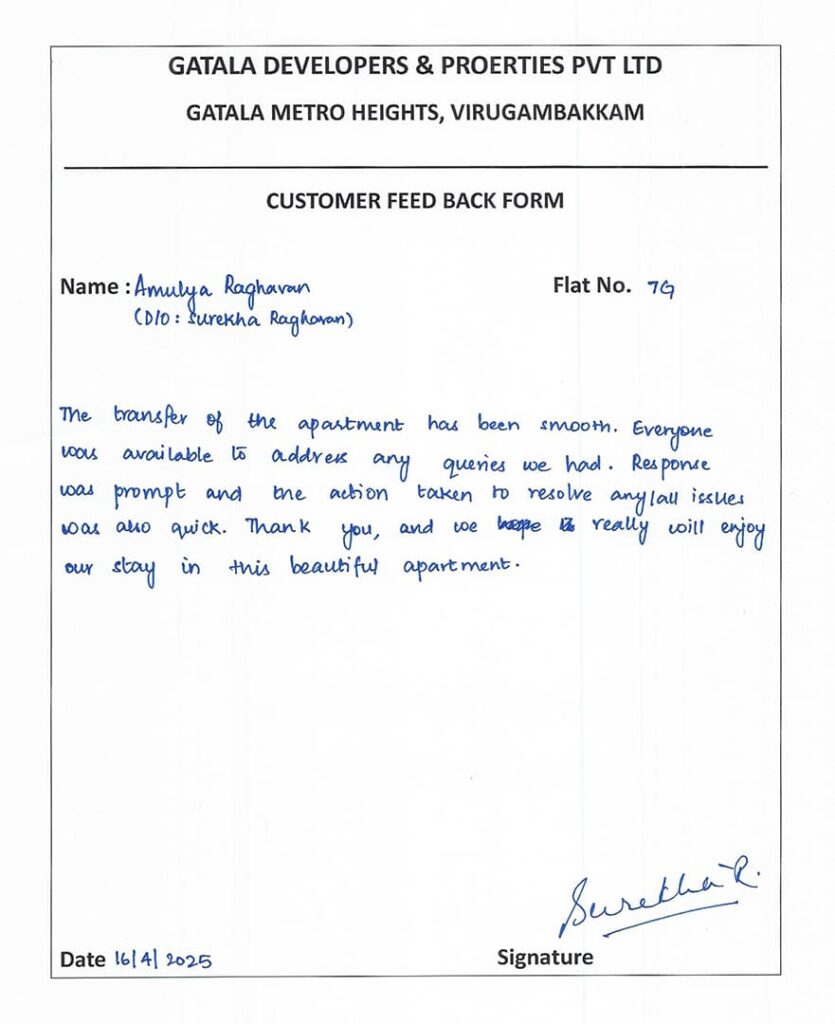 GATALA DEVELOPERS & PROERTIES PVT LTD
GATALA METRO HEIGHTS, VIRUGAMBAKKAM
CUSTOMER FEED BACK FORM
Name : Amulya Raghavan Flat No. 7G
(D/O : Surekha Raghavan)
The transfer of the apartment has been smooth. Everyone
was available to address any queries we had. Response
was prompt and the action taken to resolve any/all issues
was also quick. Thank you, and we really will enjoy
our stay in this beautiful apartment.
Surekha R.
Date 16/4/2025 Signature